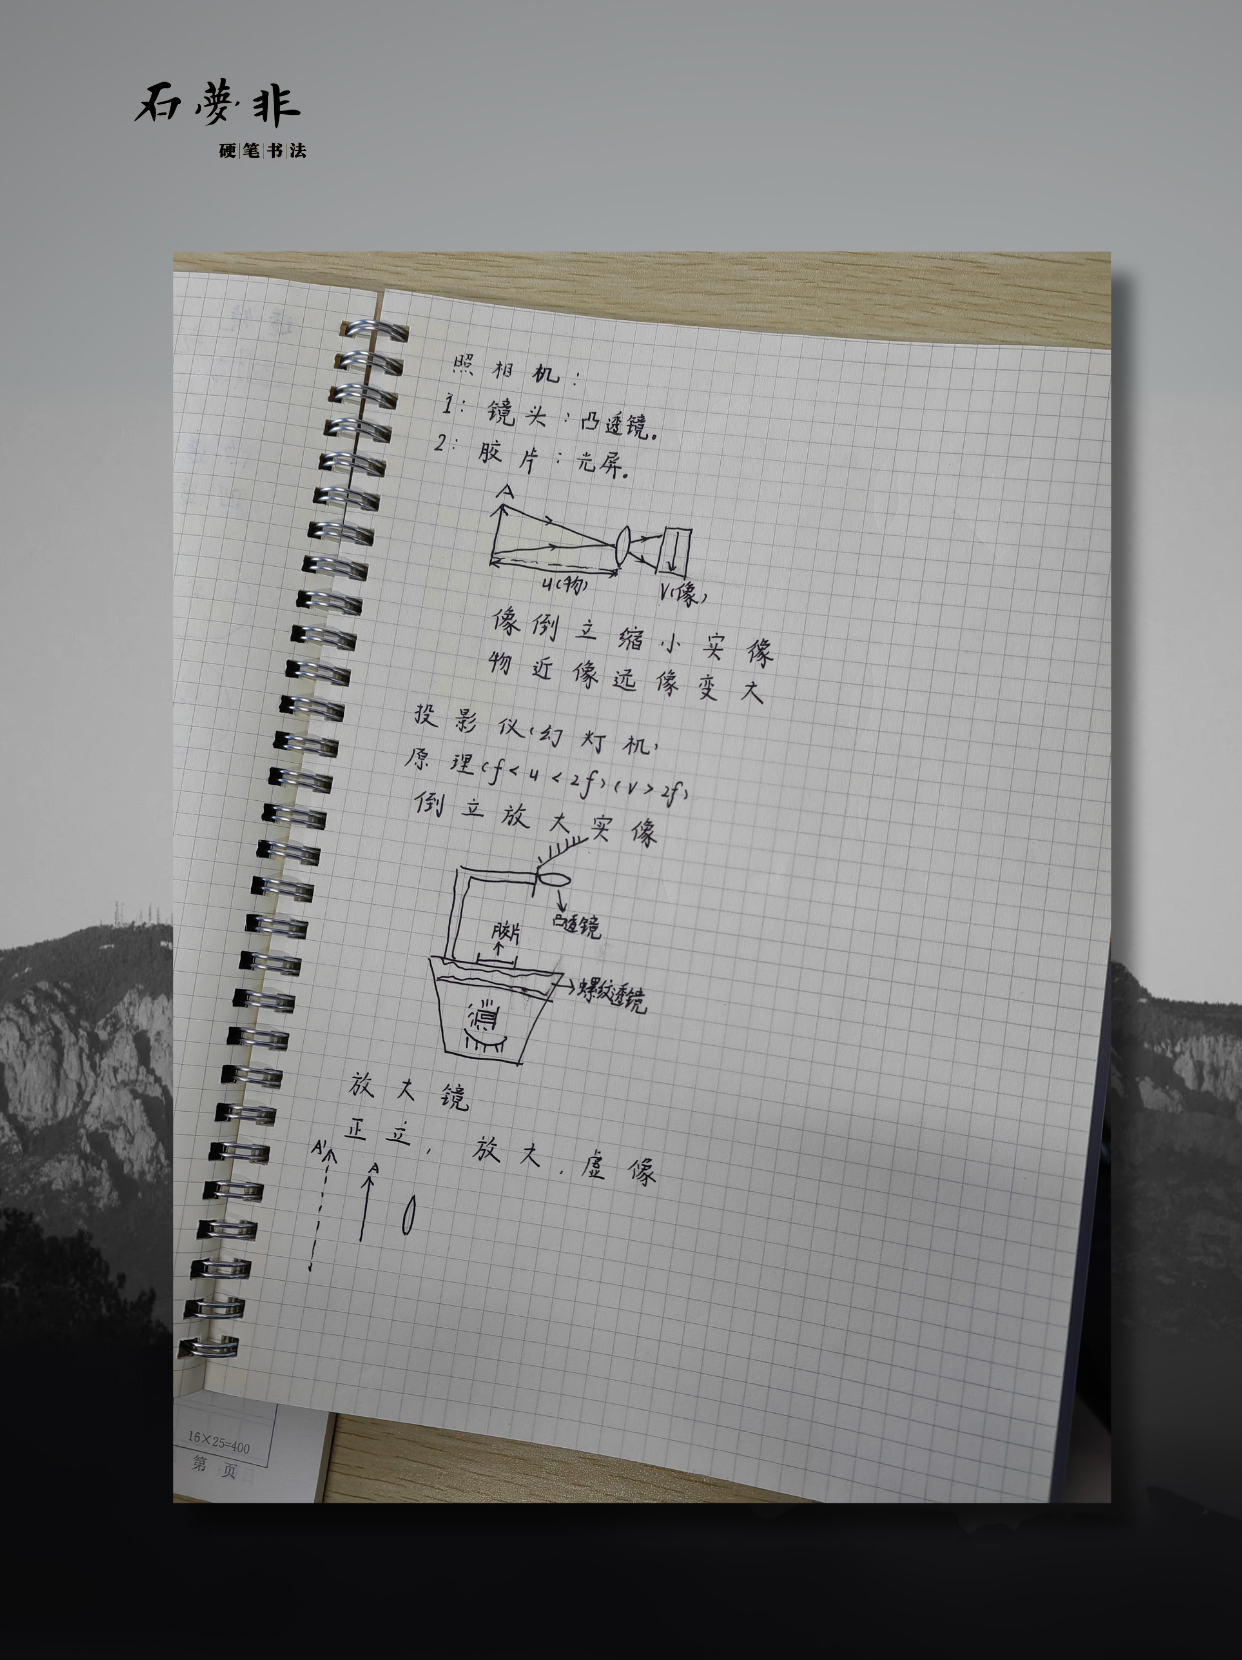 石夢非
硬笔书法
照相机:
1:镜头:凸透镜.
2:胶片:光屏.
A
u(物)
V(像)
像倒立缩小实像
物近像远像变大
投影仪(幻灯机)
原理(f<u<2f)(v>2f)
倒立放大实像
凸透镜
胶片
螺纹透镜
放大镜
正立,放大,虚像
A'
A
16×25=400
第 页